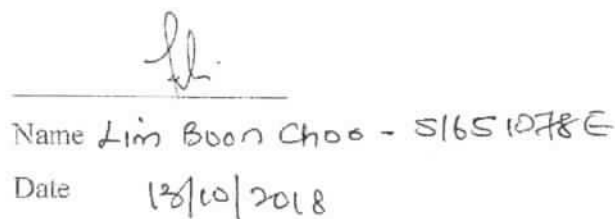 Name Lim Boon Choo - S1651078E
Date 13/10/2018